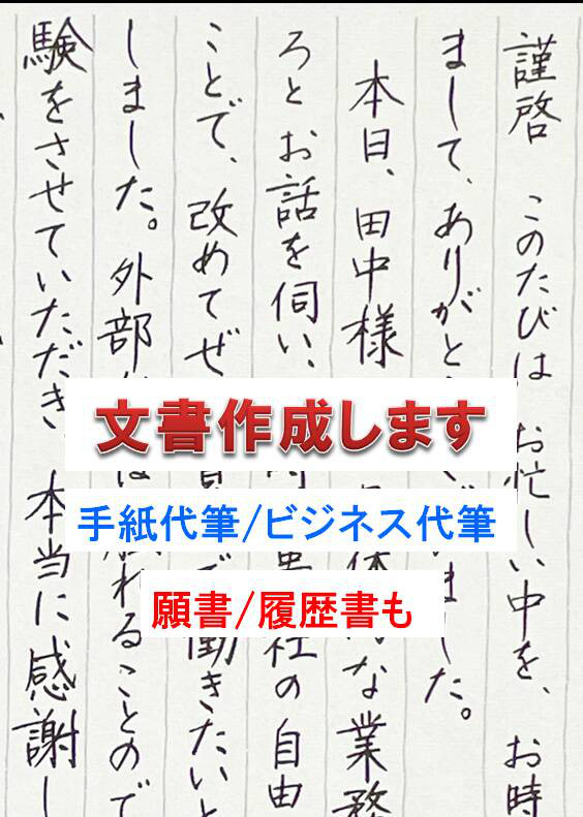 謹啓 このたびは お忙しい中を、お時
まして、ありがと いました。
本日、田中様 体 な業務
ろとお話を伺い、 社の自由
ことで、改めてぜ で働きたいと
しました。外部 は れることので
験をさせていただき 本当に感謝し
文書作成します
手紙代筆/ビジネス代筆
願書/履歴書も